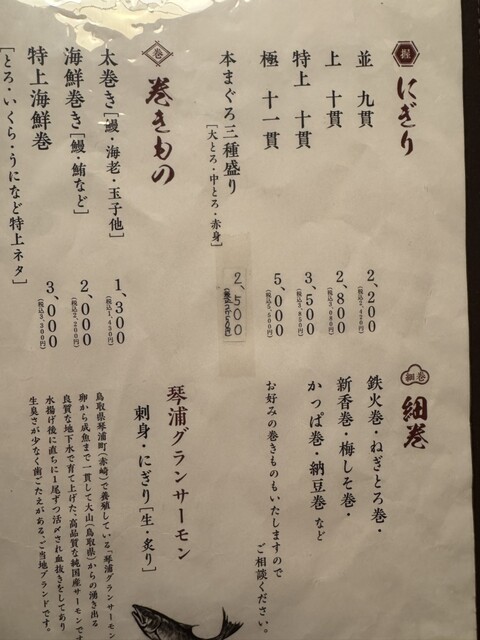 握
にぎり
並 九貫
2,200
(税込2,420円)
上 十貫
2,800
(税込3,080円)
特上 十貫
3,500
(税込3,850円)
極 十一貫
5,000
(税込5,500円)
本まぐろ三種盛り
[大とろ・中とろ・赤身]
2,500
(税込2,750円)
巻
巻きもの
太巻き[鰻・海老・玉子他]
1,300
(税込1,430円)
海鮮巻き[鰻・鮪など]
2,000
(税込2,200円)
特上海鮮巻
[とろ・いくら・うになど特上ネタ]
3,000
(税込3,300円)
細巻
細巻
鉄火巻・ねぎとろ巻・
新香巻・梅しそ巻・
かっぱ巻・納豆巻 など
お好みの巻きものもいたしますので
ご相談ください。
琴浦グランサーモン
刺身・にぎり[生・炙り]
鳥取県琴浦町(赤崎)で養殖している、「琴浦グランサーモン
卵から成魚まで一貫して大山(鳥取県)からの湧き出る
良質な地下水で育て上げた、高品質な純国産サーモンです
水揚げ後に直ちに1尾ずつ活〆され血抜きをしてあり
生臭さが少なく歯ごたえがある、ご当地ブランドです。